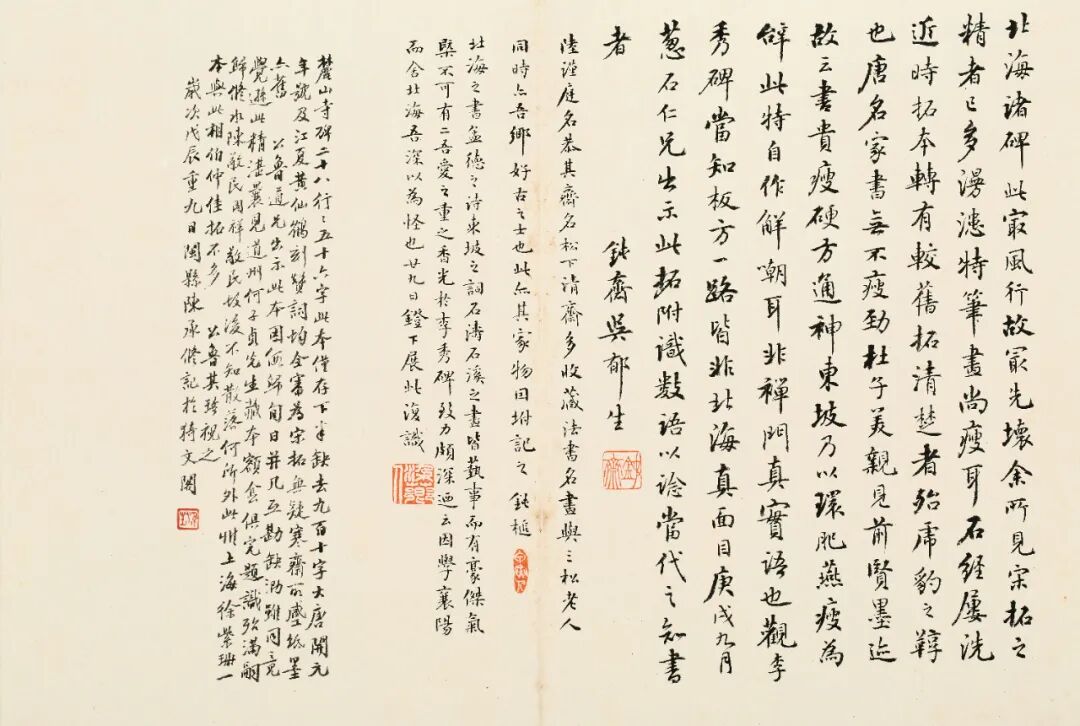 北海諸碑此最風行故最先壞余所見宋拓之
精者已多漫漶特筆畫尚瘦耳石經屢洗
近時拓本轉有較舊拓清楚者殆虎豹之鞟
也唐名家書無不瘦勁杜子美親見前賢墨迹
故云書貴瘦硬方通神東坡乃以環肥燕瘦為
辭此特自作解嘲耳非禪門真實語也觀李
秀碑當知板方一路皆非北海真面目庚戌九月
蔥石仁兄出示此拓附識數語以諗當代之知書
者 鈍齋吳郁生
陸謹庭名恭其齋名松下清齋多收藏法書名畫與三松老人
同時亦吾鄉好古之士也此亦其家物因坿記之 鈍樵
北海之書孟德之詩東坡之詞石濤石溪之畫皆藝事而有豪傑氣
槩不可有二吾愛之重之香光於李秀碑致力頗深迺云因學襄陽
而舍北海吾深以為怪也廿九日鐙下展此復識
麓山寺碑二十八行行五十六字此本僅存下半缺去九百十字大唐開元
年號及江夏黃仙鶴刻贊詞均全審為宋拓無疑寒齋所壓紙墨
亦舊 公魯道兄出示此本因假歸旬日并几互勘缺泐雖同竟
覺遜此精湛曩見道州何子貞先生藏本額盒俱完題識弥滿嗣
歸修水陳敏民因祥敏民故後不知散落何所外此惟上海徐紫珊一
本與此相伯仲佳拓不多 公魯其珍視之
歲次戊辰重九日閩縣陳承修記於猗文閣